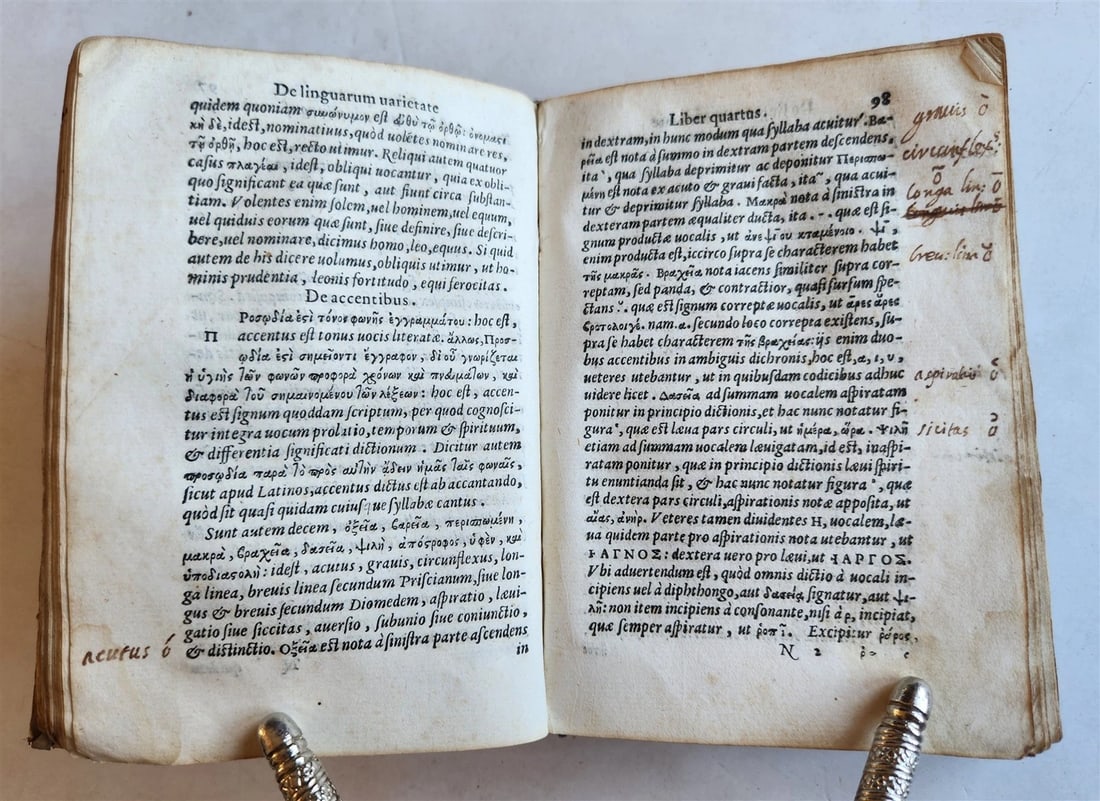 De linguarum uarietate
quidem quoniam συνώνυμον est εὐθὺ τῷ ὀρθῷ: ὀνομαστι
κὴ δὲ, idest, nominatiuus, quòd uolẽtes nominare res,
τῷ ὀρθῇ, hoc est, recto utimur. Reliqui autem quatuor
casus πλαγίαι, idest, obliqui uocantur, quia ex obli-
quo significant ea quæ sunt, aut fiunt circa substan-
tiam. Volentes enim solem, uel hominem, uel equum,
uel quiduis eorum quæ sunt, siue definire, siue descri-
bere, uel nominare, dicimus homo, leo, equus. Si quid
autem de his dicere uolumus, obliquis utimur, ut ho-
minis prudentia, leonis fortitudo, equi ferocitas.
De accentibus.
Π Ροσῳδία ἐστὶ τόνος φωνῆς ἐγγραμμάτου: hoc est,
accentus est tonus uocis literatæ. ἄλλως, Προσ-
ῳδία ἐστὶ σημεῖόν τι ἔγγραφον, δι' οὗ γνωρίζεται
ἡ ὑγιὴς τῶν φωνῶν προφορὰ χρόνων καὶ πνευμάτων, καὶ
διαφορὰ τοῦ σημαινομένου τῶν λέξεων: hoc est, accen-
tus est signum quoddam scriptum, per quod cognosci-
tur integra uocum prolatio, temporum & spirituum,
& differentia significati dictionum. Dicitur autem
προσῳδία παρὰ τὸ πρὸς αὐτὴν ᾄδειν ἡμᾶς ταῖς φωναῖς,
sicut apud Latinos, accentus dictus est ab accantando,
quòd sit quasi quidam cuiusque syllabæ cantus.
Sunt autem decem, ὀξεῖα, βαρεῖα, περισπωμένη,
μακρὰ, βραχεῖα, δασεῖα, ψιλὴ, ἀπόστροφος, ὑφὲν, καὶ
ὑποδιαστολὴ: idest, acutus, grauis, circunflexus, lon-
ga linea, breuis linea secundum Priscianum, siue lon-
gus & breuis secundum Diomedem, aspiratio, læui-
gatio siue siccitas, auersio, subunio siue coniunctio,
& distinctio. Οξεῖα est nota à sinistra parte ascendens
in
acutus ó
Liber quartus. 98
in dextram, in hunc modum qua syllaba acuitur´. Βα-
ρεῖα est nota à summo in dextram partem descendens,
ita`, qua syllaba deprimitur ac deponitur Περισπω-
μένη est nota ex acuto & graui facta, ita˜, qua acui-
tur & deprimitur syllaba. Μακρὰ nota à sinistra in
dexteram partem æqualiter ducta, ita .-. quæ est si-
gnum productæ uocalis, ut
enim producta est, iccirco supra se characterem habet
τῆς μακρᾶς. Βραχεῖα nota iacens similiter supra cor-
reptam, sed panda, & contractior, quasi sursum spe-
ctans ˘. quæ est signum correptæ uocalis, ut ἄρες ἄρες
βροτολοιγέ. nam .α. secundo loco correpta existens, su-
pra se habet characterem τῆς βραχείας: ijs enim duo-
bus accentibus in ambiguis dichronis, hoc est, α, ι, υ,
ueteres utebantur, ut in quibusdam codicibus adhuc
uidere licet. Δασεῖα ad summam uocalem aspiratam
ponitur in principio dictionis, et hac nunc notatur fi-
gura῾, quæ est læua pars circuli, ut ἡμέρα, ὥρα. Ψιλὴ
etiam ad summam uocalem læuigatam, id est, inaspi-
ratam ponitur, quæ in principio dictionis læui spiri-
tu enuntianda sit, & hac nunc notatur figura᾿, quæ
est dextera pars circuli, aspirationis notæ apposita, ut
αἴας, ἀνήρ. Veteres tamen diuidentes H, uocalem, læ-
ua quidem parte pro aspirationis nota utebantur, ut
ͰΑΓΝΟΣ: dextera uero pro læui, ut ꟵΑΡΓΟΣ.
Vbi aduertendum est, quòd omnis dictio à uocali in-
cipiens uel à diphthongo, aut δασεῖα signatur, aut ψι-
λῇ: non item incipiens à consonante, nisi à ρ, incipiat,
quæ semper aspiratur, ut ῥοπὶ. Excipitur ῥάρος,
N 2 ῥ-
grauis ò
circunflexs:
longa lin: ō
breu: lin ŏ
aspiratio
sicitas